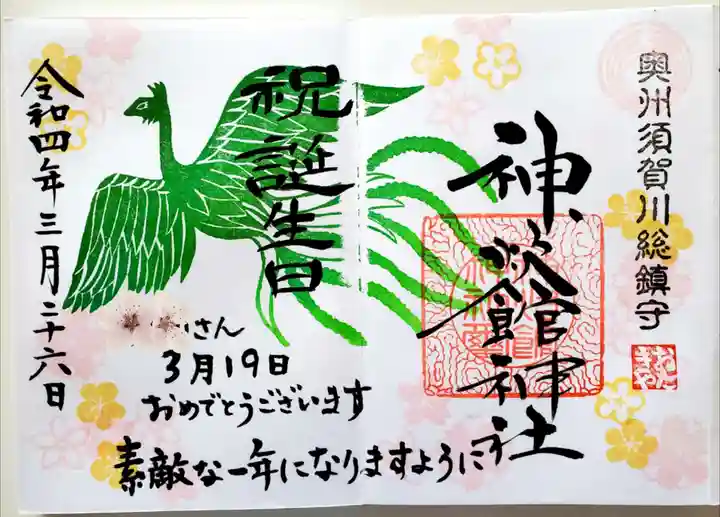 奥州須賀川総鎮守
神炊館神社
祝誕生日
さん
3月19日
おめでとうございます
素敵な一年になりますように
令和四年三月二十六日